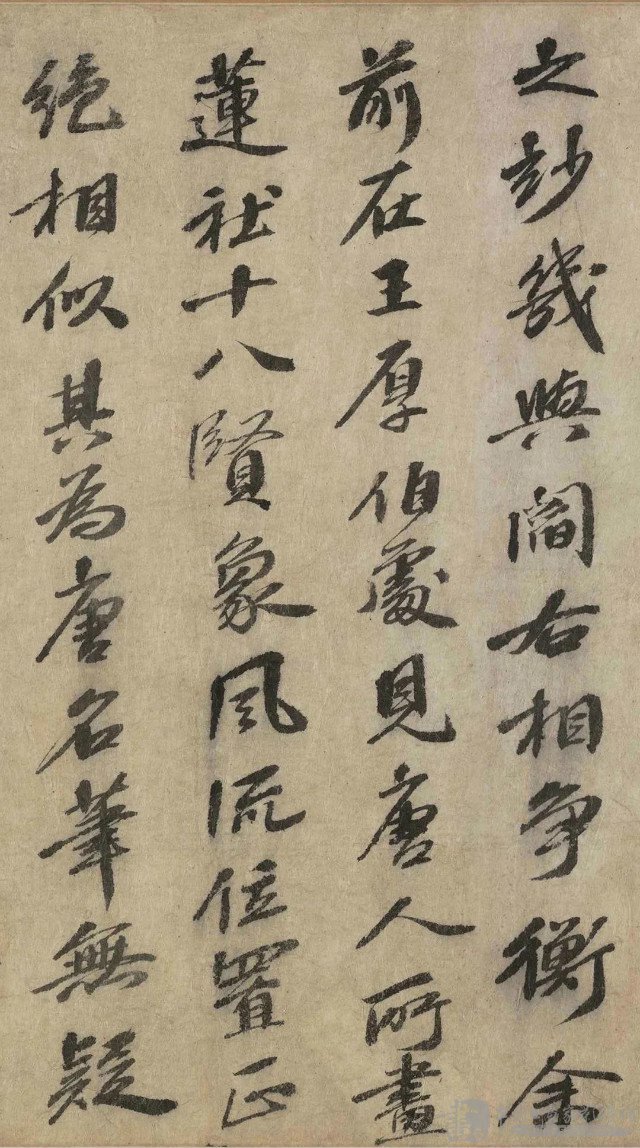 之妙幾與閻右相争衡余
前在王厚伯處見唐人所畫
蓮社十八賢象風流位置正
絶相似其為唐名筆無疑